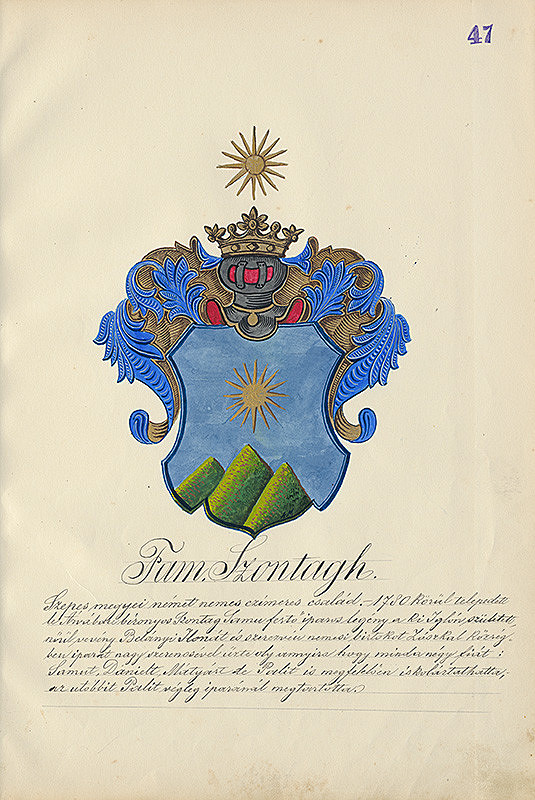 47
Fam. Szontagh.
Szepes megyei német nemes czímeres család. – 1780 körül telepedett
le Samu festő iparos legény a ki Iglón született,
nőül vevén Belányi Ilonát és szerezvén nemesi birtokot Ziszkai község-
ben iparát nagy szerencsével űzte oly annyira hogy minden négy fiát:
Samut, Dánielt, Mátyást de Pált is megfelelően iskoláztathatta,
az utóbbit végleg iparánál megtartotta.